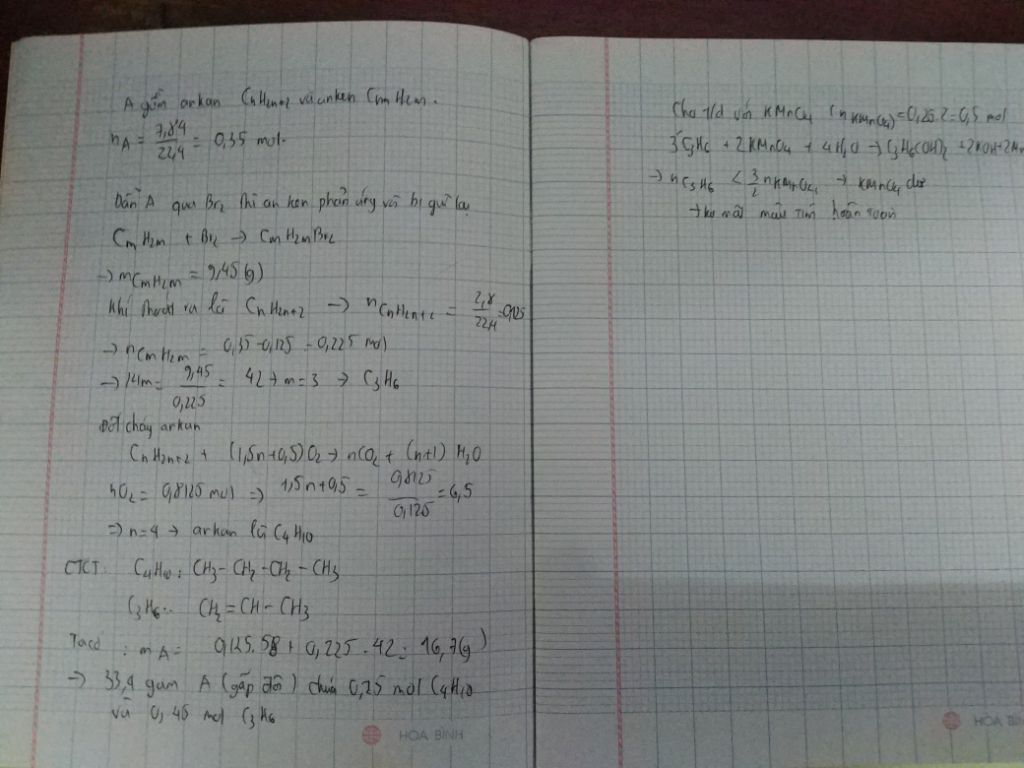 A gồm ankan CnH2n+2 và anken CmH2m.
nA = 7,84/22,4 = 0,35 mol.
Dẫn A qua Br2 thì anken phản ứng và bị giữ lại
CmH2m + Br2 → CmH2mBr2
→ mCmH2m = 9,45 (g)
Khí thoát ra là CnH2n+2 → nCnH2n+2 = 2,8/22,4 = 0,125
→ nCmH2m = 0,35 - 0,125 = 0,225 mol
→ 14m = 9,45/0,225 = 42 → m = 3 → C3H6
Đốt cháy ankan
CnH2n+2 + (1,5n+0,5)O2 → nCO2 + (n+1) H2O
nO2 = 0,8125 mol => 1,5n+0,5 = 0,8125/0,125 = 6,5
=> n=4 → ankan là C4H10
CTCT C4H10: CH3-CH2-CH2-CH3
C3H6.. CH2=CH-CH3
Ta có : mA = 0,125.58 + 0,225.42 = 16,7(g)
→ 33,4 gam A (gấp đôi) chứa 0,25 mol C4H10
và 0,45 mol C3H6
HÒA BÌNH
Cho t/d với KMnO4 (nKMnO4) = 0,25.2 = 0,5 mol
3C3H6 + 2KMnO4 + 4H2O → C3H6(OH)2 + 2KOH + 2Mn
→ nC3H6 < 3/2 nKMnO4 → KMnO4 dư
→ ko mất màu tím hoàn toàn
HÒA BÌN